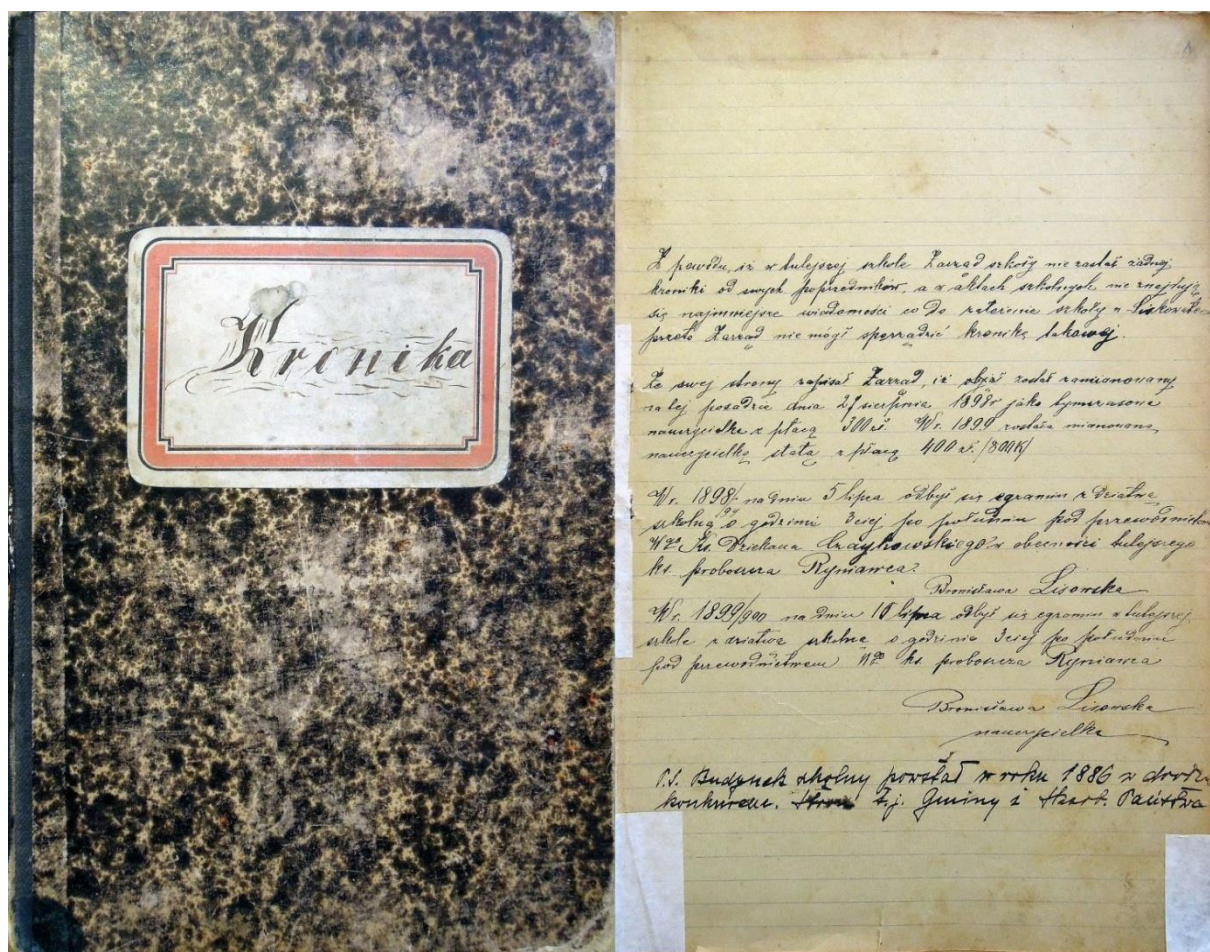 Kronika
Z powodu, iż w tutejszej szkole Zarząd szkoły nie zastał żadnej
kroniki od swych poprzedników, a w aktach szkolnych nie znajduje
się najmniejsze wiadomości co do założenia szkoły w Liskowatem
przeto Zarząd nie mógł sporządzić kronikę takowej.
Ze swej strony zapisał Zarząd, iż objął został zamianowany
na tej posadzie dnia 27 sierpnia 1898r jako tymczasowa
nauczycielka z płacą 300 zł. W r. 1899 została mianowaną
nauczycielką stałą z płacą 400 zł. /800K/
W r. 1898/99 na dniu 5 lipca odbył się egzamin z dziatwą
szkolną o godzinie 3ciej po południu pod przewodnictwem
Wgo Ks. Dziekana w obecności tutejszego
ks. proboszcza Ryniawca.
Bronisława Lisowska
W r. 1899/900 na dniu lipca odbył się egzamin w tutejszej
szkole z dziatwą szkolną o godzinie 3ciej po południu
pod przewodnictwem Wgo ks. proboszcza Ryniawca
Bronisława Lisowska
nauczycielka
P.S. Budynek szkolny powstał w roku 1886 w drodze
konkurenc. t.j. Gminy i Skarb. Państwa